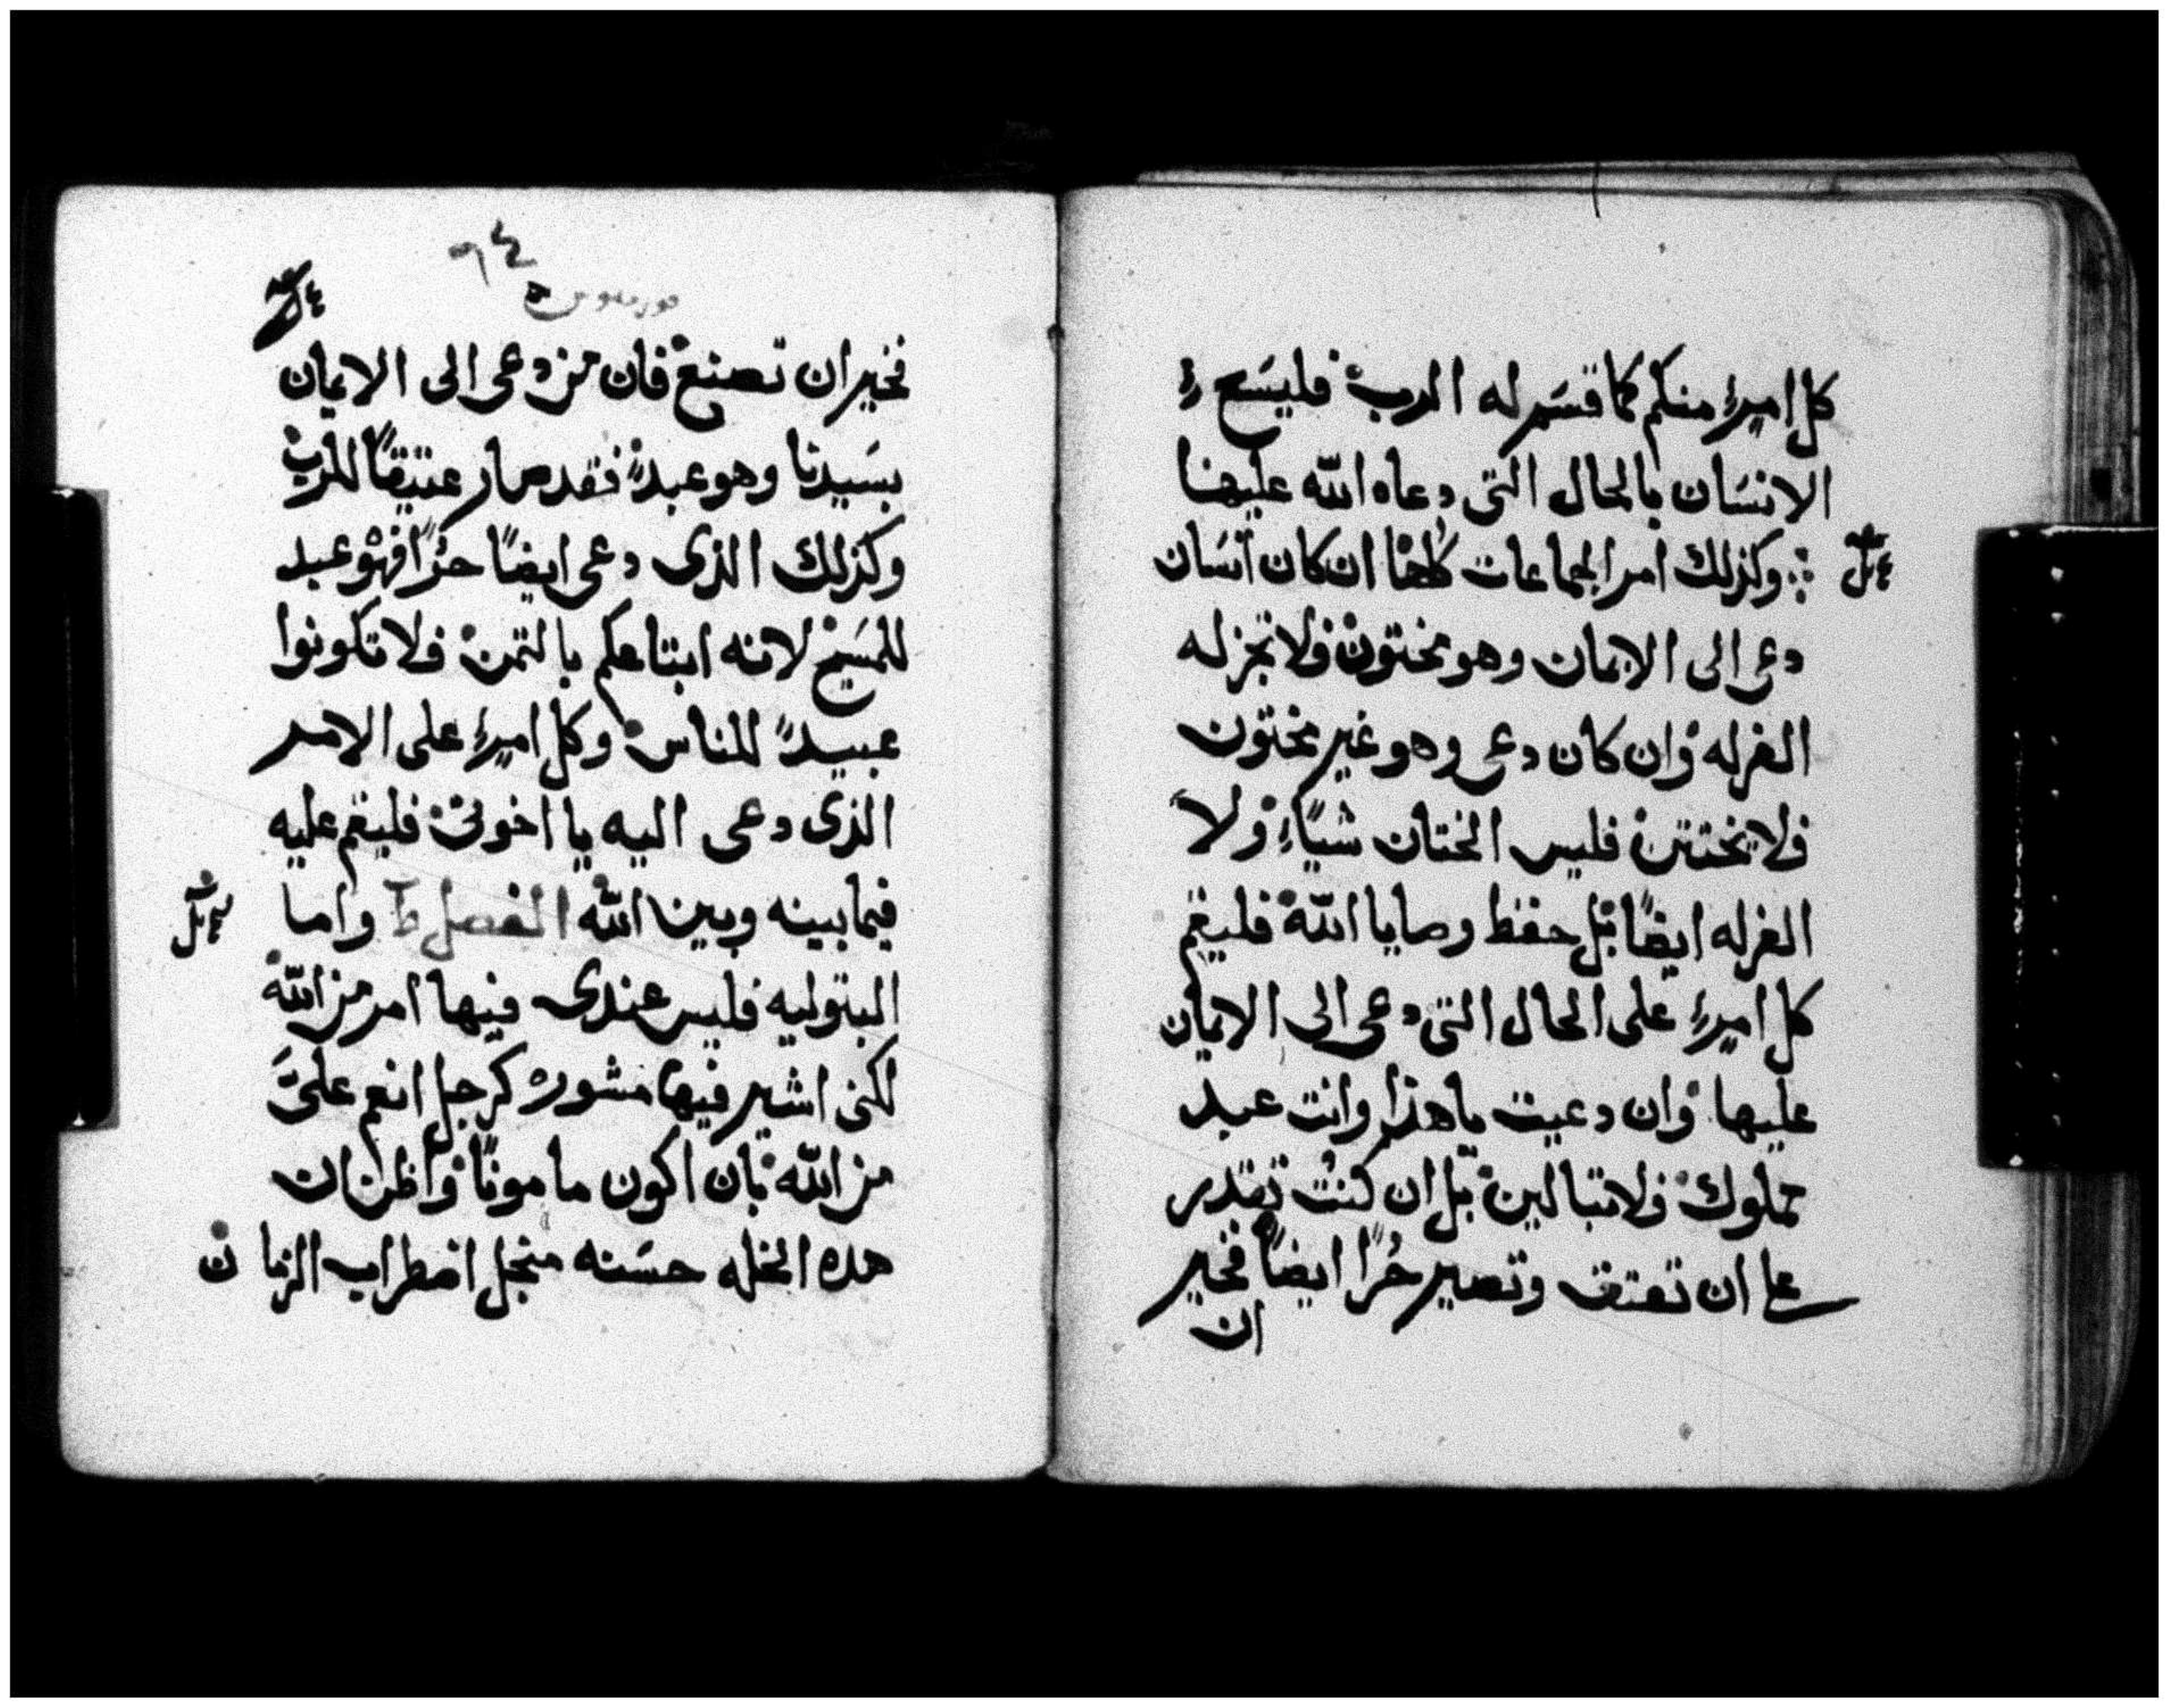 كل امرىٍ منكم كما قسَم له الرب فليسَع
الانسَان بالحال التى دعاه الله عليها
وكذلك امر الجماعات كلها ان كان انسَان
دعى الى الايمان وهو مختون فلا تجز له
الغرله وان كان دعى وهو غير مختون
فلا يختتن فليس الختان شياً ولا
الغرله ايضاً بل حفظ وصايا الله فليقم
كل امرىٍ على الحال التى دعى الى الايمان
عليها وان دعيت ياهذا وانت عبد
مملوك فلا تبالين بل ان كنت تقدر
على ان تعتق وتصير حُراً ايضاً فخير
ان
٦٤
فخير ان تصنع فان من دعى الى الايمان
بسَيدنا وهو عبدً فقد صار عتيقاً للرب
وكذلك الذى دعى ايضاً حرًا فهو عبد
للمسَيح لانه ابتاعكم بالثمن فلا تكونوا
عبيدً للناس وكل امرىٍ على الامر
الذى دعى اليه يا اخوتى فليقم عليه
فيما بينه وبين الله الفصل واما
البتوليه فليس عندى فيها امر من الله
لكنى اشير فيها مشوره كرجل انعم علىَّ
من الله بان اكون ماموناً واظن ان
هده الخله حسَنه منجل اضطراب الزمان